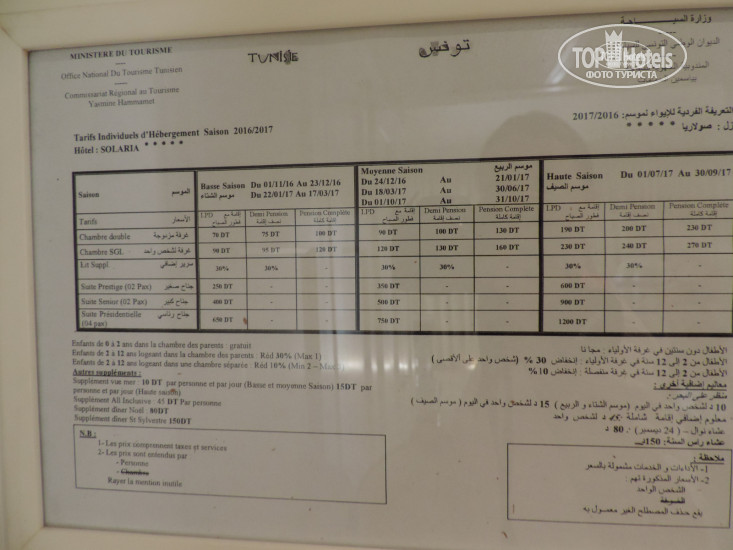 MINISTERE DU TOURISME
Office National Du Tourisme Tunisien
Commissariat Régional au Tourisme
Yasmine Hammamet
TUNISIE
تونس
TOPHotels
ФОТО ТУРИСТА
Tarifs Individuels d'Hébergement Saison 2016/2017
Hôtel : SOLARIA * * * * *
وزارة السيـــاحة
الديوان الوطني التونسي
التعريفة الفردية للإيواء لموسم: 2017/2016
نزل : صولاريا * * * * *
Saison الموسم
Basse Saison Du 01/11/16 Au 23/12/16
موسم الشتاء Du 22/01/17 Au 17/03/17
Moyenne Saison موسم الربيع
Du 24/12/16 Au 21/01/17
Du 18/03/17 Au 30/06/17
Du 01/10/17 Au 31/10/17
Haute Saison Du 01/07/17 Au 30/09/17
موسم الصيف
Tarifs الأسعار LPD إقامة مع فطور الصباح Demi Pension نصف إقامة Pension Complète إقامة كاملة LPD إقامة مع فطور الصباح Demi Pension نصف إقامة Pension Complète إقامة كاملة LPD إقامة مع فطور الصباح Demi Pension نصف إقامة Pension Complète إقامة كاملة
Chambre double غرفة مزدوجة 70 DT 75 DT 100 DT 90 DT 100 DT 130 DT 190 DT 200 DT 230 DT
Chambre SGL غرفة لشخص واحد 90 DT 95 DT 120 DT 120 DT 130 DT 160 DT 230 DT 240 DT 270 DT
Lit Suppl سرير إضافي 30% 30% - 30% 30% - 30% 30% -
Suite Prestige (02 Pax) جناح صغير 250 DT - - 350 DT - - 600 DT - -
Suite Senior (02 Pax) جناح كبير 400 DT - - 500 DT - - 900 DT - -
Suite Présidentielle (04 pax) جناح رئاسي 650 DT - - 750 DT - - 1200 DT - -
Enfants de 0 à 2 ans dans la chambre des parents : gratuit
Enfants de 2 à 12 ans logeant dans la chambre des parents : Réd 30% (Max 1)
Enfants de 2 à 12 ans logeant dans une chambre séparée : Réd 10% (Min 2 –
Autres suppléments :
Supplément vue mer : 10 DT par personne et par jour (Basse et moyenne Saison) 15DT par
personne et par jour (Haute saison)
Supplément All Inclusive : 45 DT Par personne
Supplément diner Noël : 80DT
Supplément diner St Sylvestre 150DT
N.B :
1- Les prix comprennent taxes et services
2- Les prix sont entendus par
- Personne
- Chambre
Rayer la mention inutile
الأطفال دون سنتين في غرفة الأولياء : مجانا
الأطفال من 2 إلى 12 سنة في غرفة الأولياء : إنخفاض 30 % (شخص واحد على الأقصى)
الأطفال من 2 إلى 12 سنة في غرفة منفصلة : إنخفاض 10%
معاليم إضافية أخرى :
10 د لشخص واحد في اليوم (موسم الشتاء و الربيع) 15 د لشخص واحد في اليوم (موسم الصيف)
معلوم إضافي إقامة شاملة د لشخص واحد
عشاء نوال – (24 ديسمبر) : 80 د
عشاء رأس السنة: 150د
ملاحظة :
1- الأداءات و الخدمات مشمولة بالسعر
2- الأسعار المذكورة لهم :
الشخص الواحد
الغرفة
يقع حذف المصطلح الغير معمول به